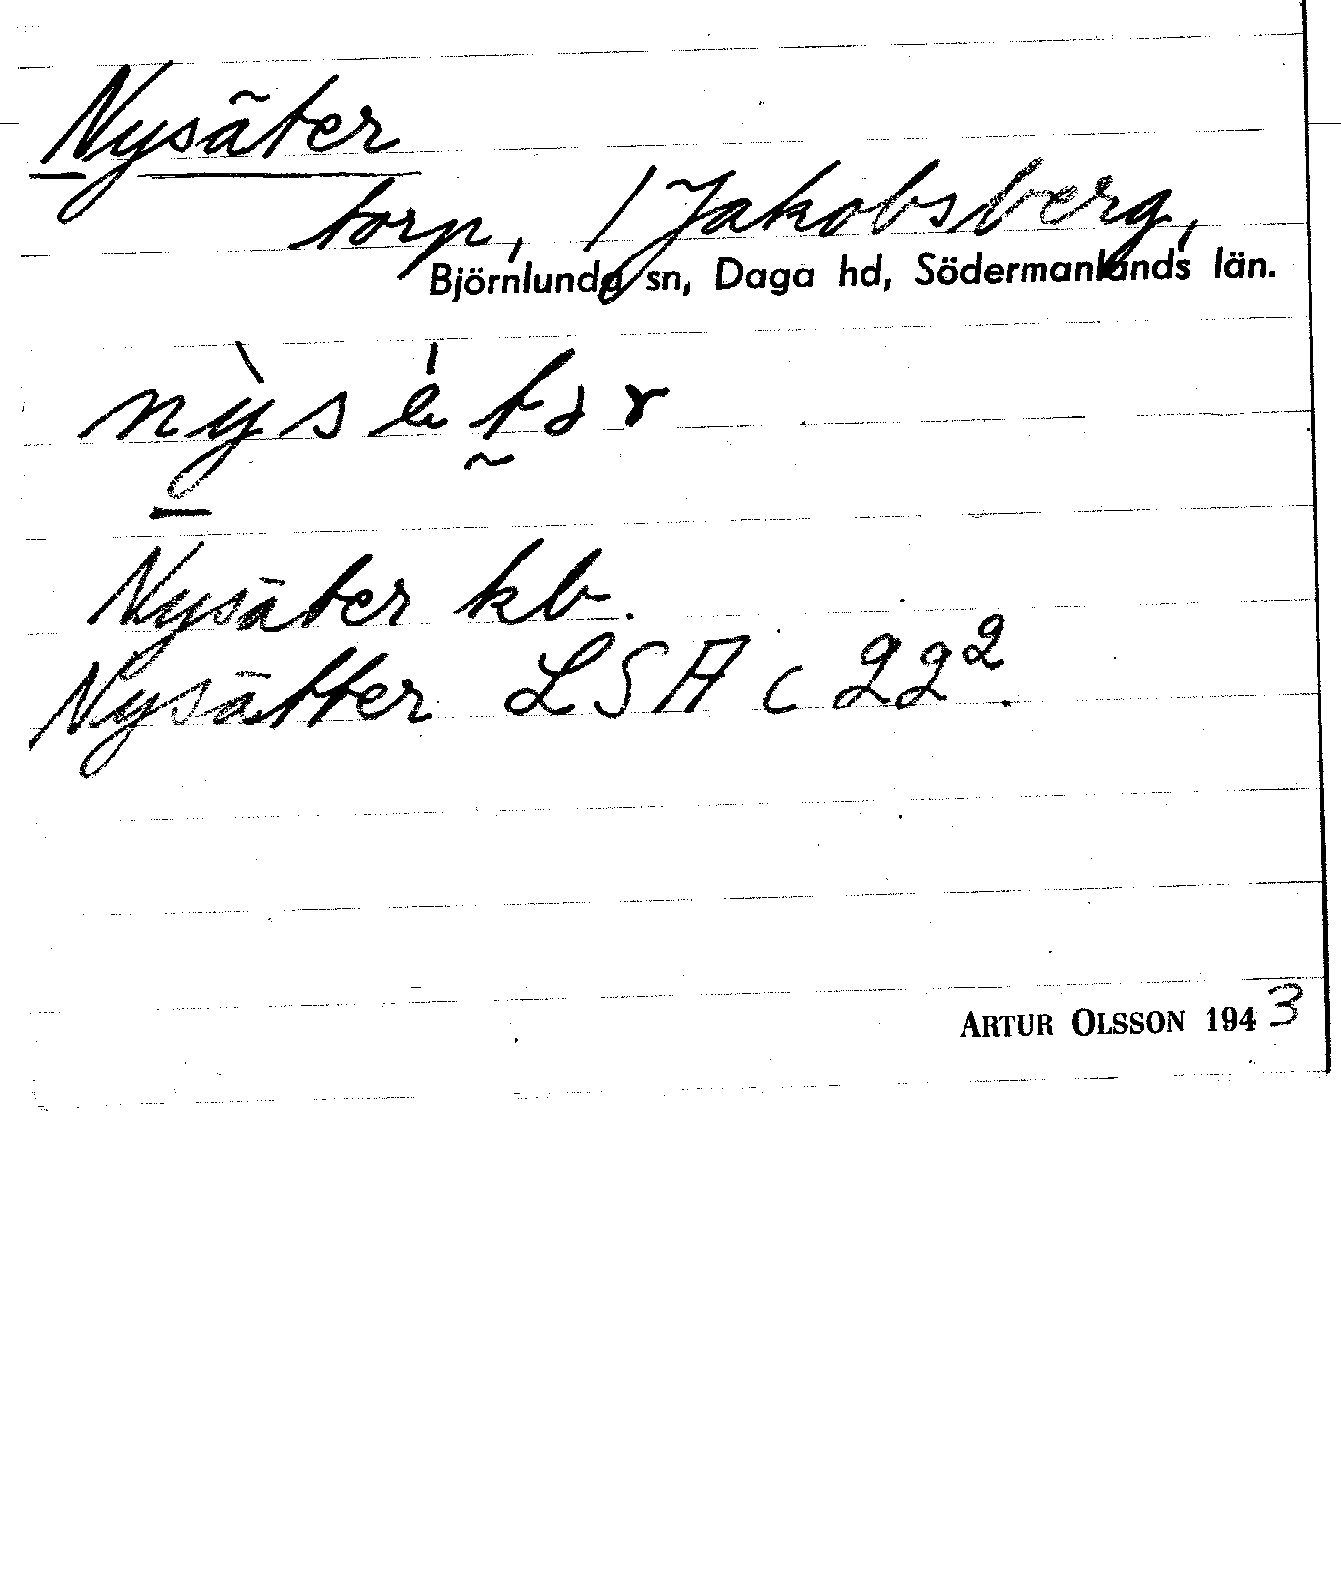 Nysäter
torp, / Jakobsberg,
Björnlunda sn, Daga hd, Södermanlands län.
Nysäter kb.
Nysätter LSA c 22².
ARTUR OLSSON 1943